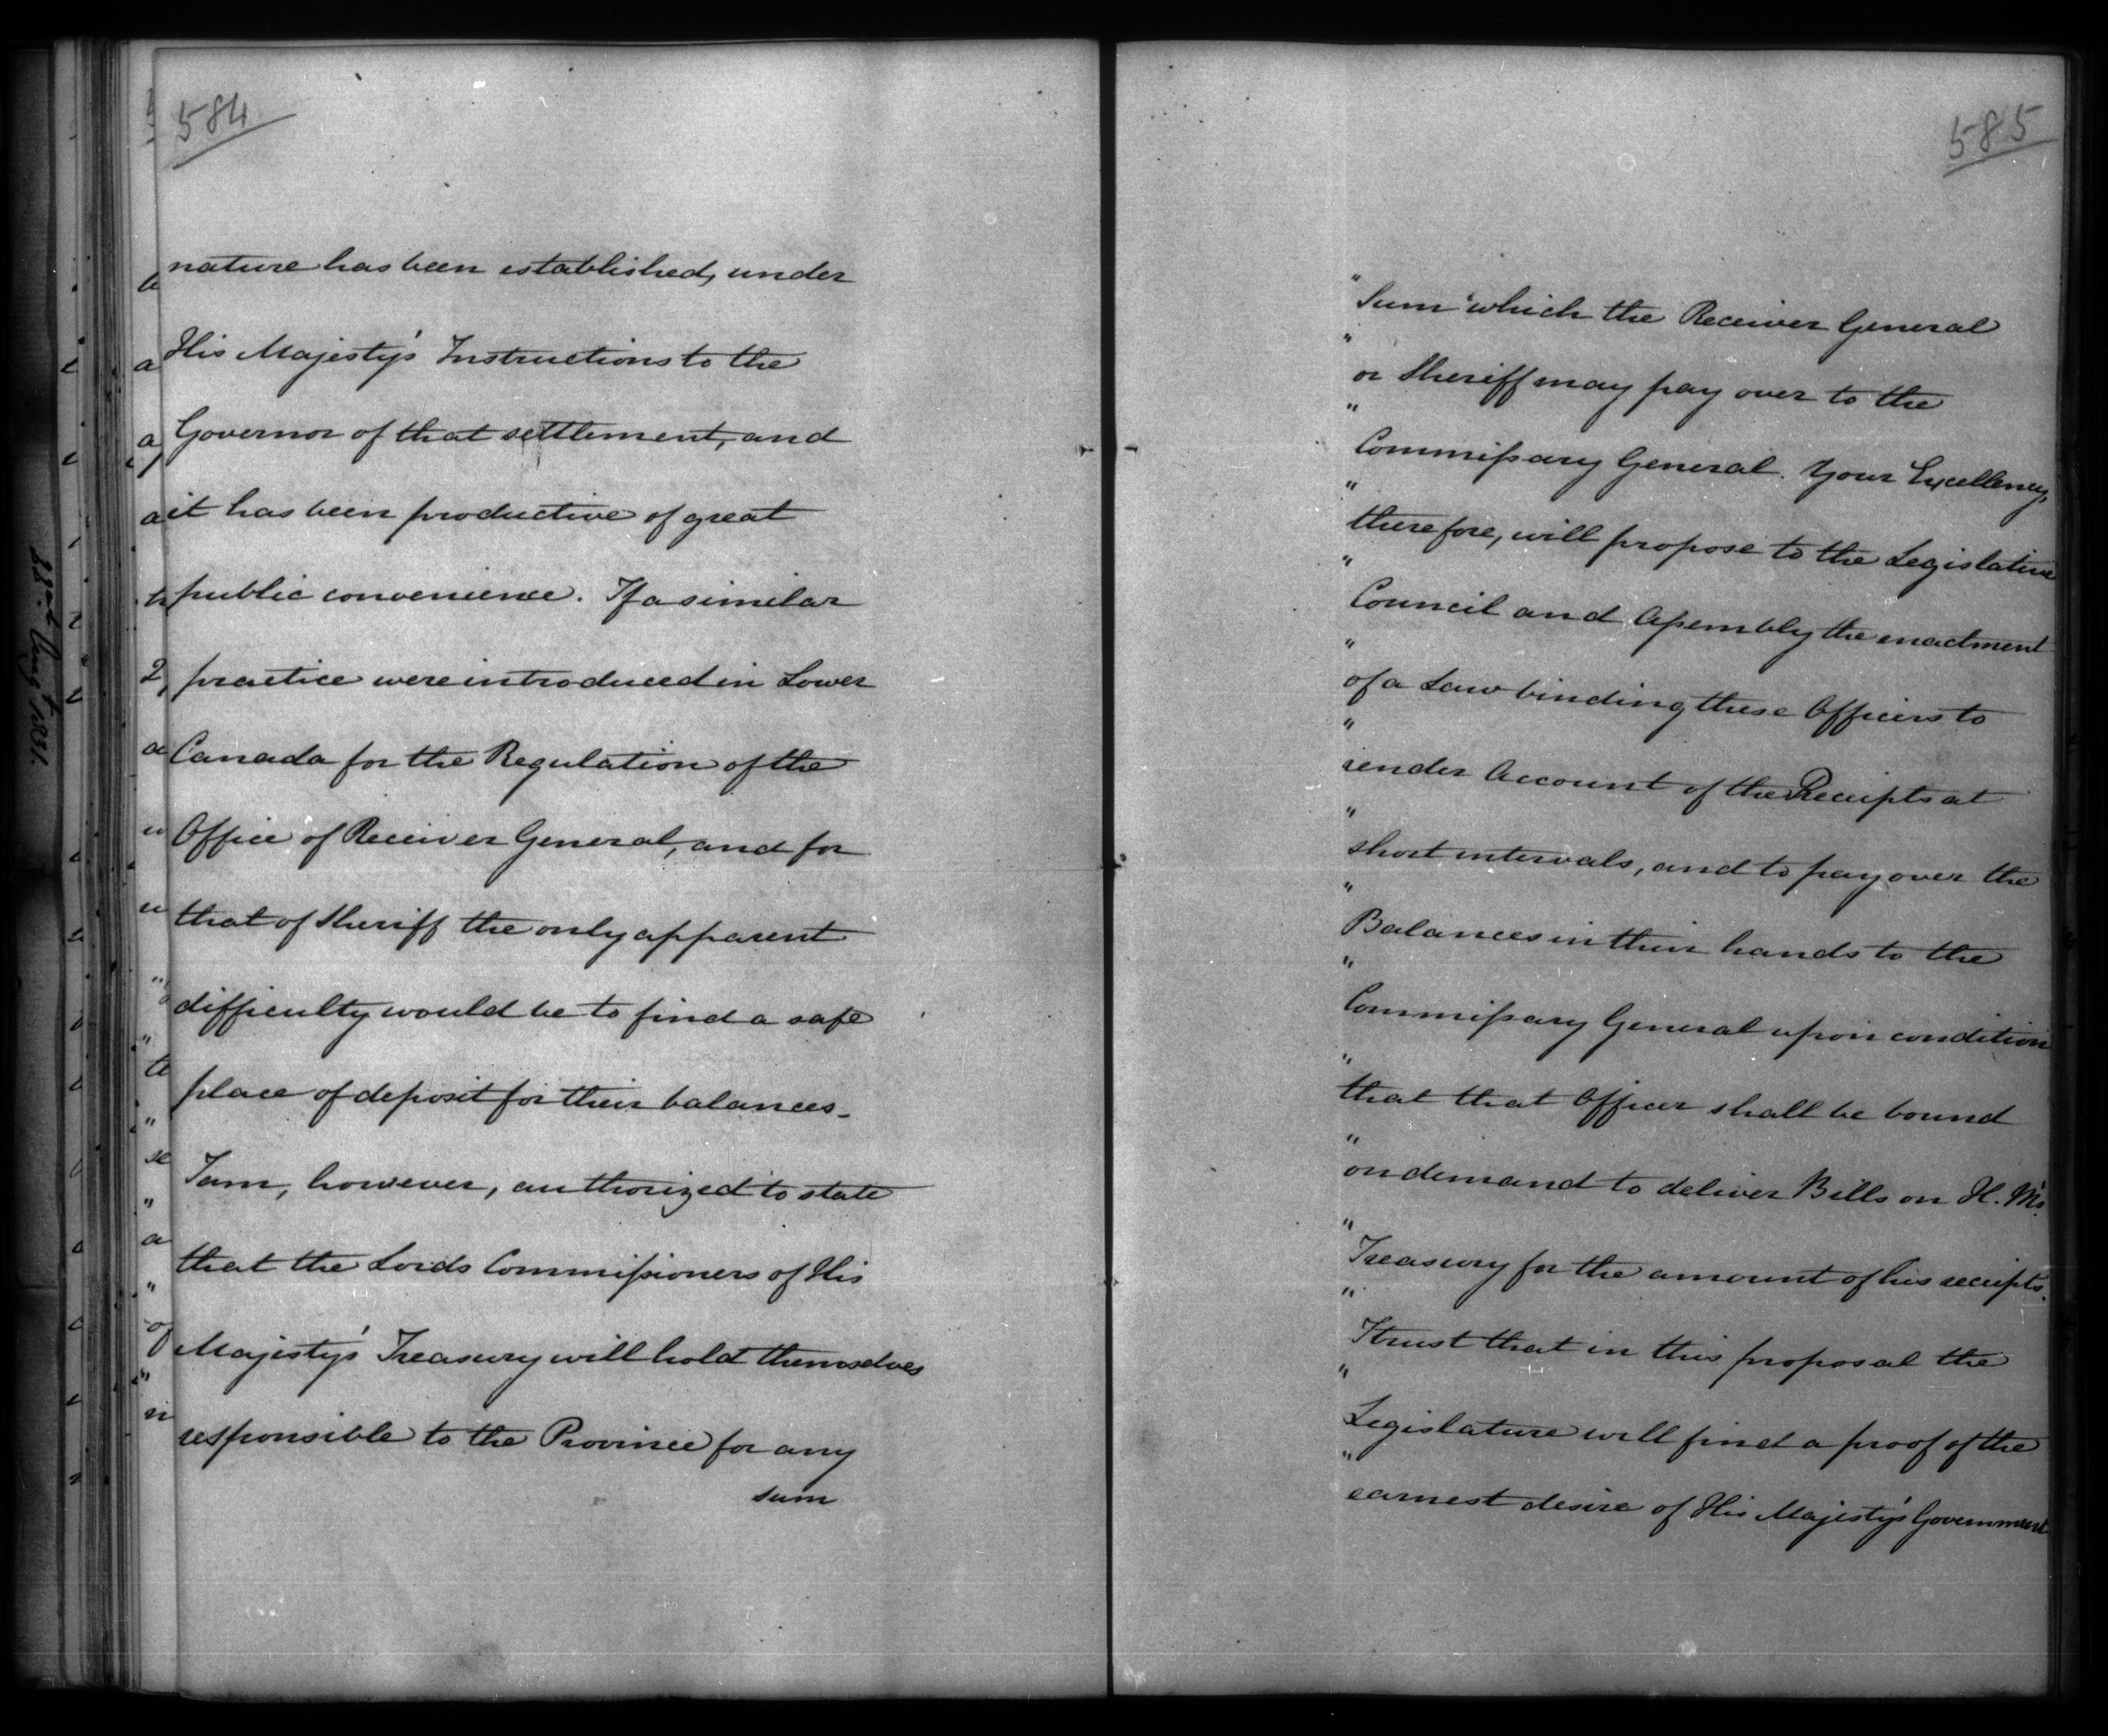 584
nature has been established, under
His Majesty's Instructions to the
Governor of that settlement, and
it has been productive of great
public convenience. If a similar
practice were introduced in Lower
Canada for the Regulation of the
Office of Receiver General, and for
that of Sheriff the only apparent
difficulty would be to find a safe
place of deposit for their balances_
I am, however, authorized to state
that the Lords Commissioners of His
Majesty's Treasury will hold themselves
responsible to the Province for any
sum
585
" Sum which the Receiver General
" or Sheriff may pay over to the
" Commissary General. Your Excellency,
" therefore, will propose to the Legislative
" Council and Assembly the enactment
" of a Law binding these Officers to
" render Account of the Receipts at
" short intervals, and to pay over the
" Balances in their hands to the
" Commissary General upon condition
" that that Officer shall be bound
" on demand to deliver Bills on H. M's.
" Treasury for the amount of his receipts.
" I trust that in this proposal the
" Legislature will find a proof of the
" earnest desire of His Majesty's Government
Augt 1831.